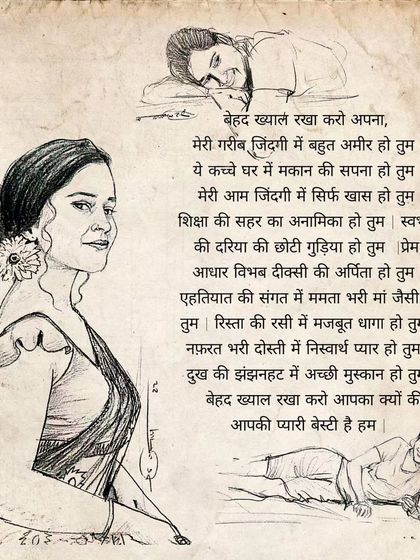 बेहद ख्याल रखा करो अपना,
मेरी गरीब जिंदगी में बहुत अमीर हो तुम
ये कच्चे घर में मकान की सपना हो तुम
मेरी आम जिंदगी में सिर्फ खास हो तुम
शिक्षा की सहर का अनामिका हो तुम |
की दरिया की छोटी गुड़िया हो तुम |प्रेम
आधार विभब दीक्सी की अर्पिता हो तुम |
एहतियात की संगत में ममता भरी मां जैसी
तुम | रिस्ता की रसी में मजबूत धागा हो
नफ़रत भरी दोस्ती में निस्वार्थ प्यार हो तुम
दुख की झंझनहट में अच्छी मुस्कान हो
बेहद ख्याल रखा करो आपका क्यों की
आपकी प्यारी बेस्टी है हम |